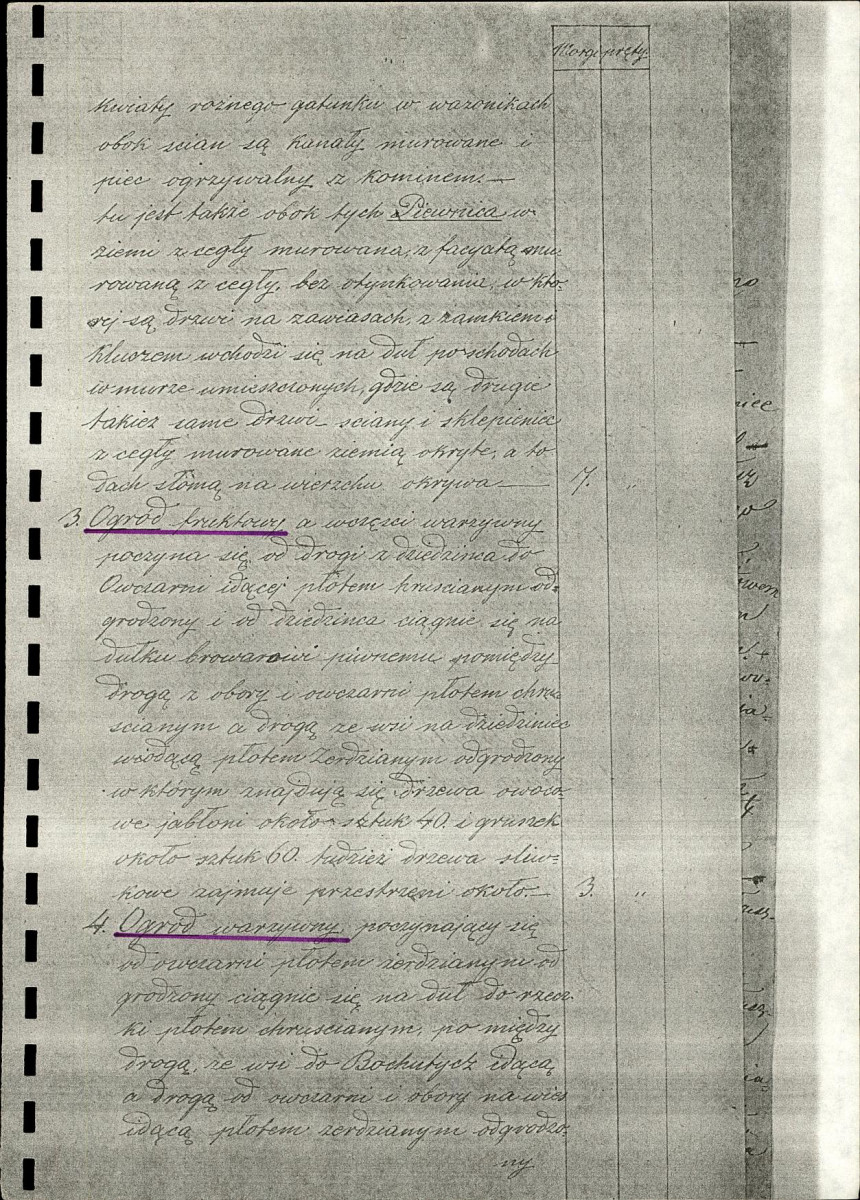 Morgi pręty.
kwiaty rożnego gatunku w wazonikach
obok scian są kanały murowane i
piec ogrzywalny z kominem. —
tu jest także obok tych Piewnica w
ziemi z cegły murowana, z facyatą mu-
rowaną z cegły bez otynkowania, w kto-
rej są drzwi na zawiasach, z zamkiem i
kluczem wchodzi się na duł po schodach
w murze umieszczonych, gdzie są drugie
takież same drzwi - sciany i sklepienie
z cegły murowane ziemią okryte, a to
dach słomą na wierzchu okrywa — 7. "
3. Ogród fruktowy a wczęsci warzywny
poczyna się od drogi z dziedzinca do
Owczarni idącej płotem hruscianym od-
grodzony i od dziedzinca ciągnie się na
dułku browarowi piwnemu pomiędzy
drogą z obory i owczarni płotem chru-
scianym a drogą ze wsi na dziedziniec
wiodącą płotem żerdzianym odgrodzony
w którym znajdują się drzewa owoco-
we jabłoni około sztuk 40. i gruszek
około sztuk 60. tudzież drzewa sliw-
kowe zajmuje przestrzeni około. — 3. "
4. Ogród warzywny poczynający się
od owczarni płotem żerdzianym od
grodzony ciągnie się na duł do rzecz-
ki płotem chruscianym, po między
drogą, ze wsi do Bochutycz idącą
a drogą od owczarni i obory na wies
idącą płotem żerdzianym odgrodzo-
ny